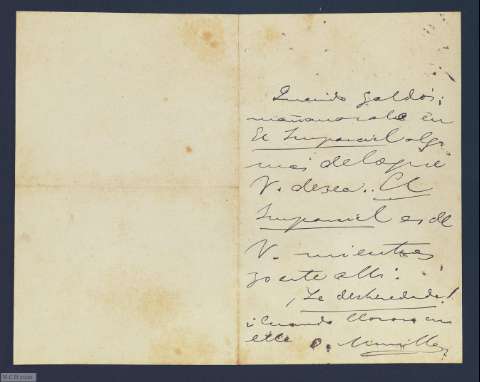 Querido Galdós:
mañana sale en
El Imparcial algo
mas de lo que
V. desea. El
Imparcial es de
V. mientras
yo esté allí.
¡La desheredada!
¡Cuando lloro con
ella
O. Munilla